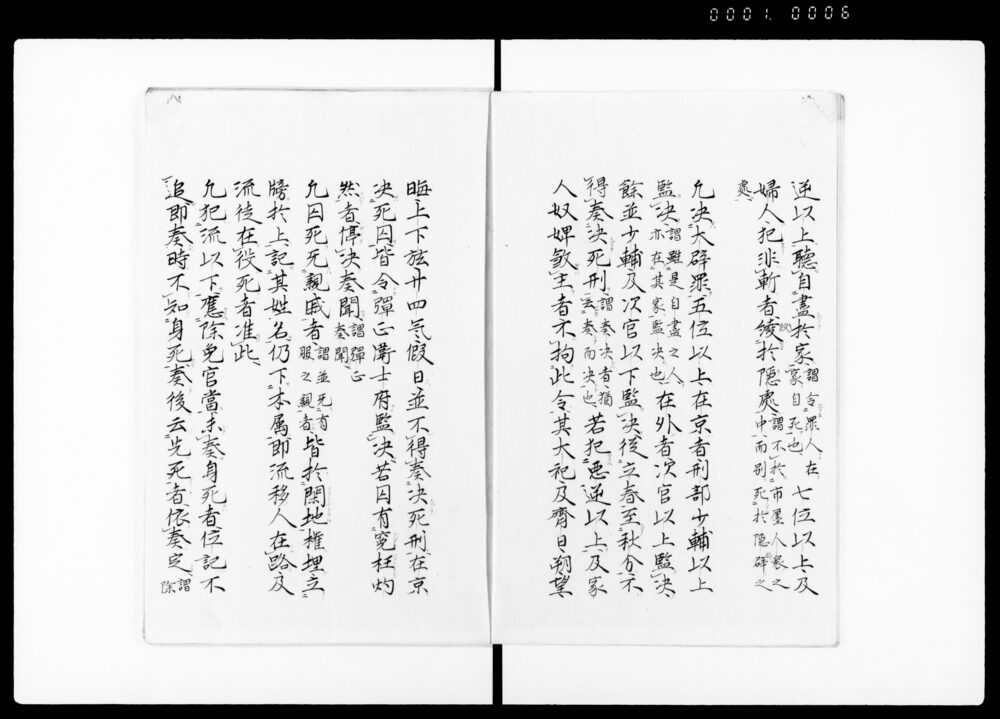 0001. 0006
逆以上聴自盡於家謂令罪人在家自死也七位以上及
婦人犯非斬者絞於隠處謂不於市廛人衆之中而別死於隠僻之
處
凡决大辟罪五位以上在京者刑部少輔以上
監决謂雖是自盡之人亦在其家監决也在外者次官以上監决
餘並少輔及次官以下監决從立春至秋分不
得奏决死刑謂奏决者猶云奏而决也若犯悪逆以上及家
人奴婢敏主者不拘此令其大祀及齊日朔望
晦上下弦廿四気假日並不得奏决死刑在京
决死囚皆令弾正衛士府監决若囚有寃枉灼
然者停决奏聞謂弾正奏聞
凡囚死无親戚者謂並无有服之親者皆於閑地權埋立
牓於上記其姓名仍下本属即流移人在路及
流徒在役死者准此
凡犯流以下應除免官當未奏身死者位記不
追即奏時不知身死奏後云先死者依奏定謂除